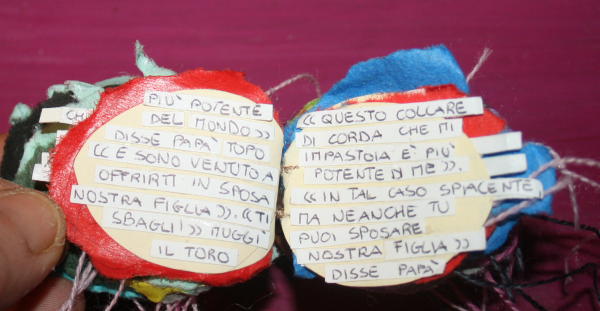 PIU' POTENTE
DEL MONDO»
DISSE PAPÀ TOPO
«E SONO VENUTO A
OFFRIRTI IN SPOSA
NOSTRA FIGLIA».«TI
SBAGLI!» MUGGÌ
IL TORO
«QUESTO COLLARE
DI CORDA CHE MI
IMPASTOIA E' PIU'
POTENTE DI ME».
«IN TAL CASO SPIACENTE
MA NEANCHE TU
PUOI SPOSARE
NOSTRA FIGLIA»
DISSE PAPÀ